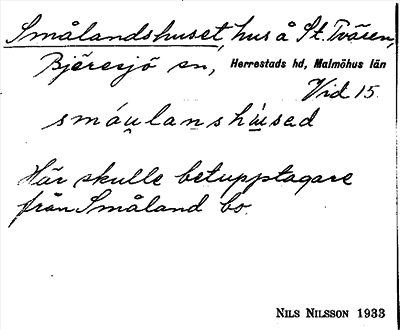 Smålandshuset, hus å St. Tvären,
Bjäresjö sn, Herrestads hd, Malmöhus län
Vid 15.
smáu̯lanshúsed
Här skulle betupptagare
från Småland bo.
NILS NILSSON 1933